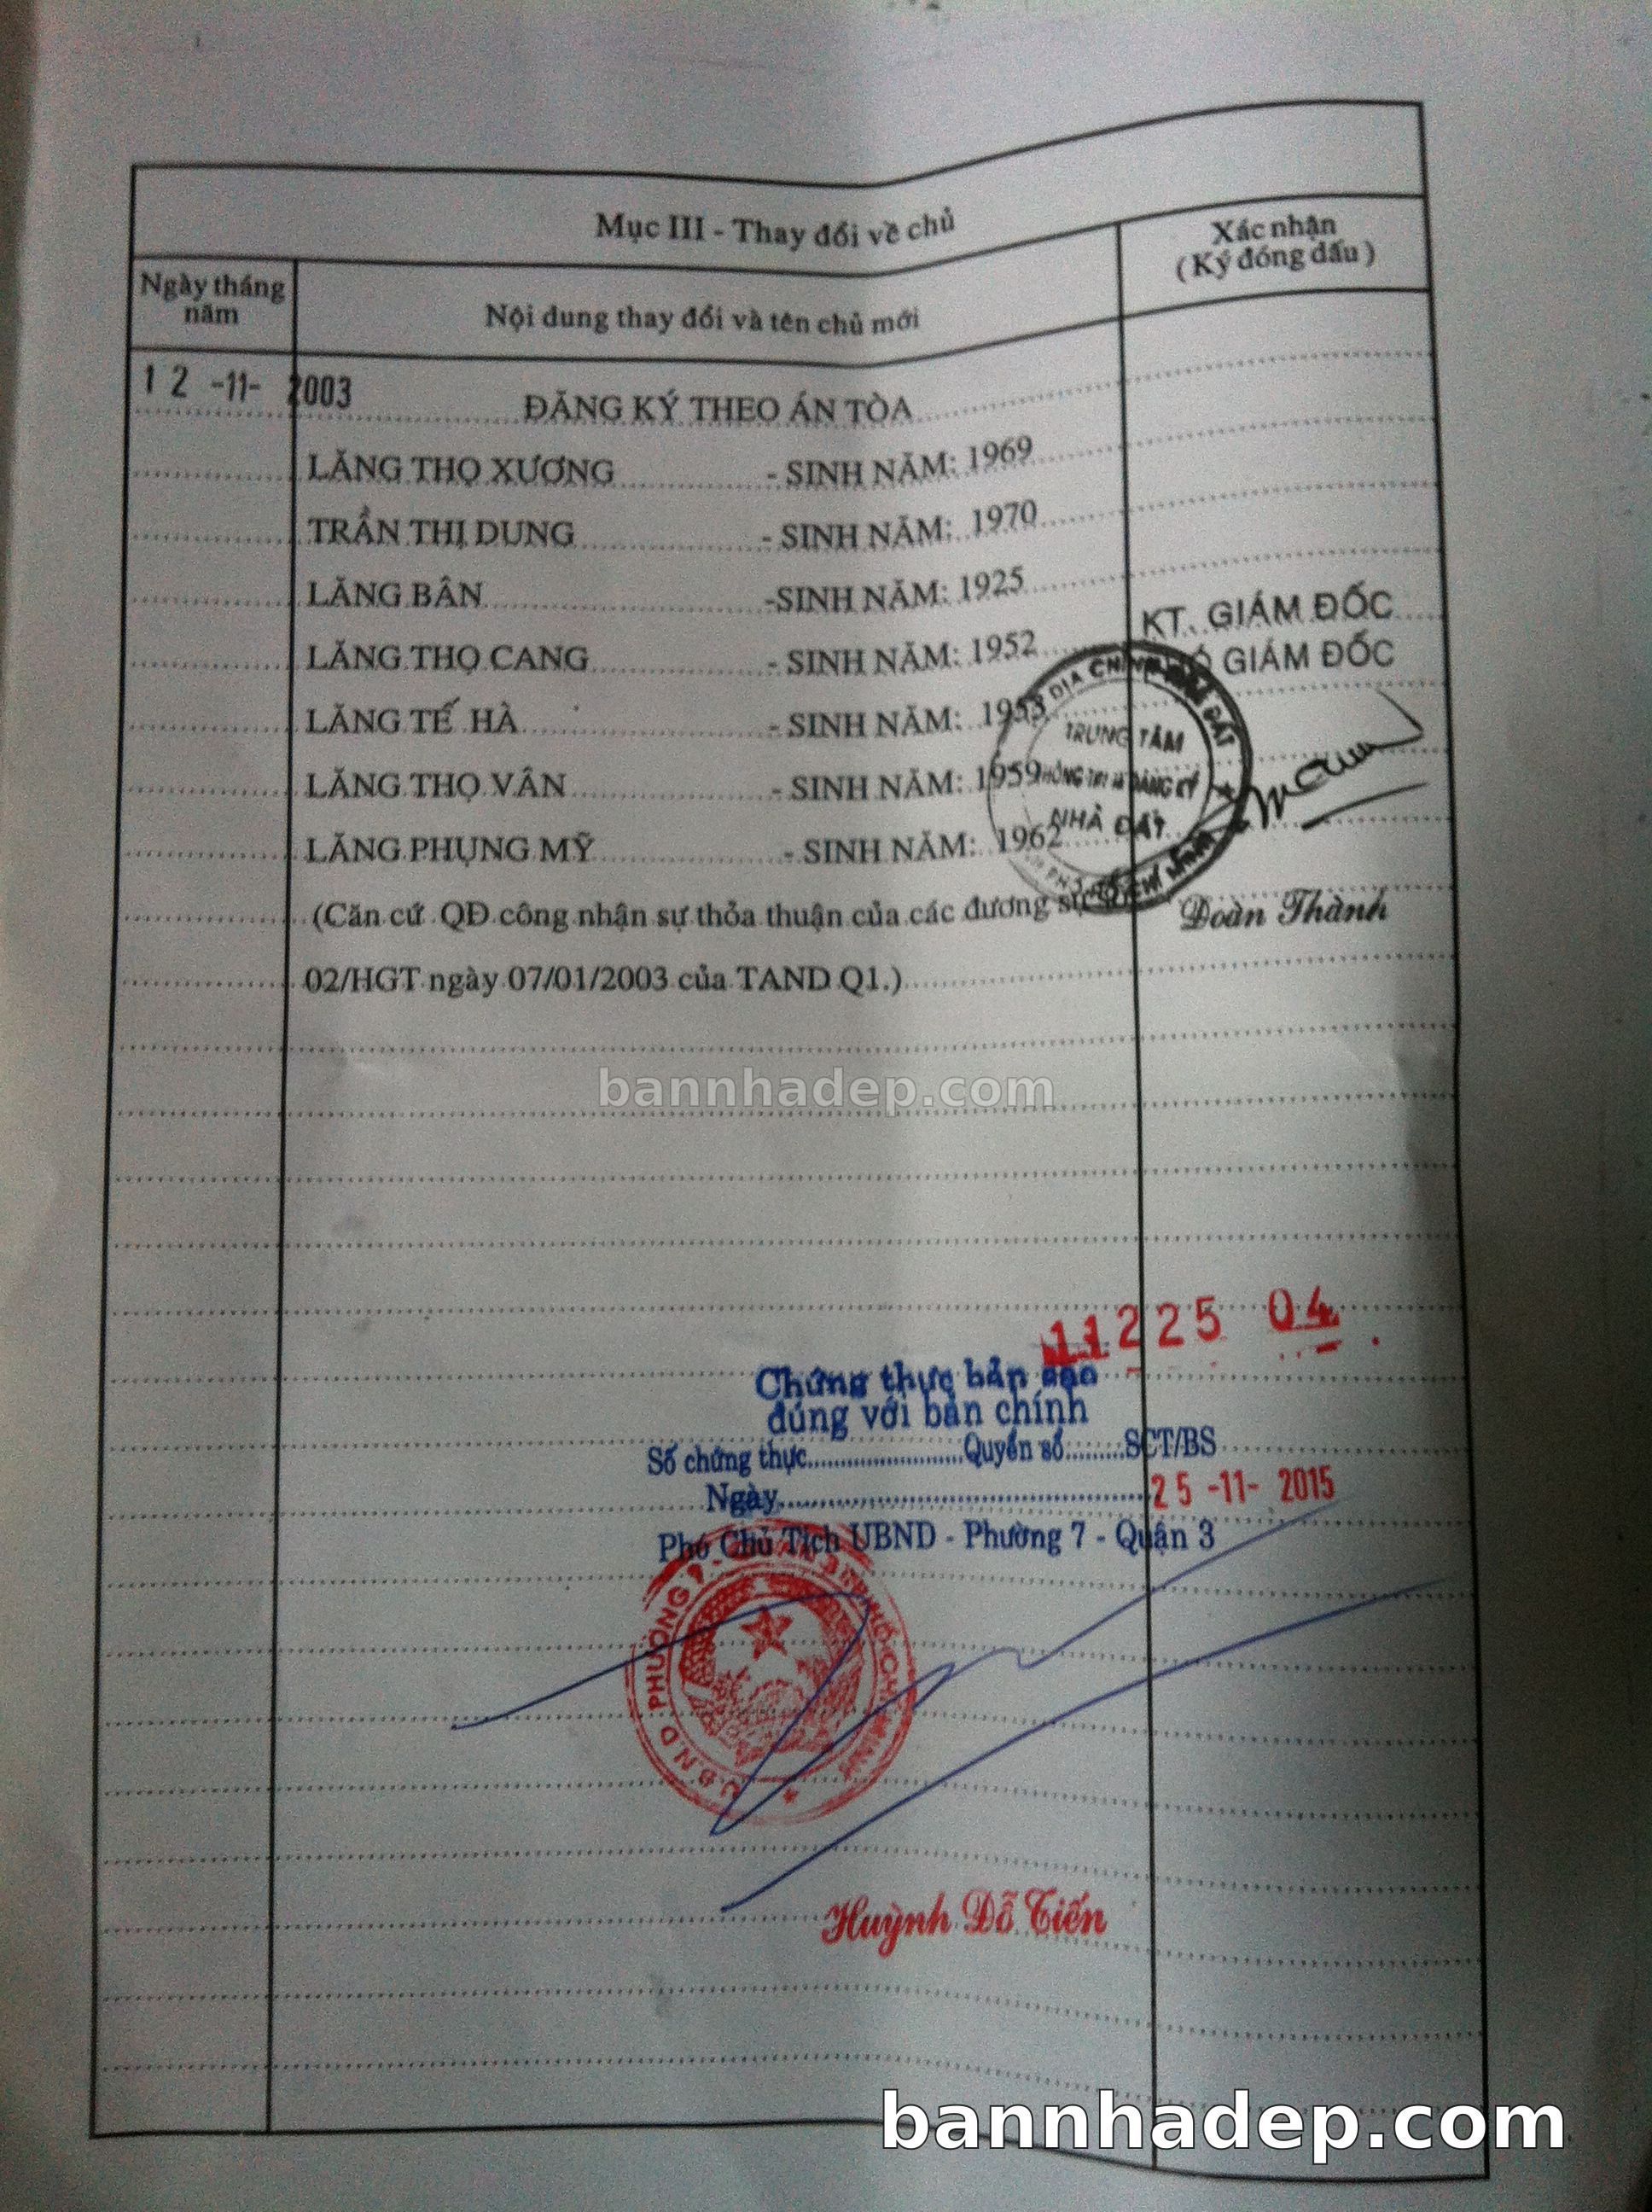 Mục III - Thay đổi về chủ
Xác nhận
(Ký đóng dấu)
Ngày tháng
năm
Nội dung thay đổi và tên chủ mới
12 -11- 2003
ĐĂNG KÝ THEO ÁN TÒA
LĂNG THỌ XƯƠNG - SINH NĂM: 1969
TRẦN THỊ DUNG - SINH NĂM: 1970
LĂNG BÂN -SINH NĂM: 1925
LĂNG THỌ CANG - SINH NĂM: 1952
LĂNG TẾ HÀ - SINH NĂM: 1953
LĂNG THỌ VÂN - SINH NĂM: 1959
LĂNG PHỤNG MỸ - SINH NĂM: 1962
(Căn cứ QĐ công nhận sự thỏa thuận của các đương sự số
02/HGT ngày 07/01/2003 của TAND Q1.)
KT. GIÁM ĐỐC
GIÁM ĐỐC
TRUNG TÂM
NHÀ ĐẤT
Đoàn Thành
bannhadep.com
11225 04
Chứng thực bản sao
đúng với bản chính
Số chứng thực Quyển số SCT/BS
Ngày 25 -11- 2015
Phó Chủ Tịch UBND - Phường 7 - Quận 3
Huỳnh Đỗ Tiến
bannhadep.com